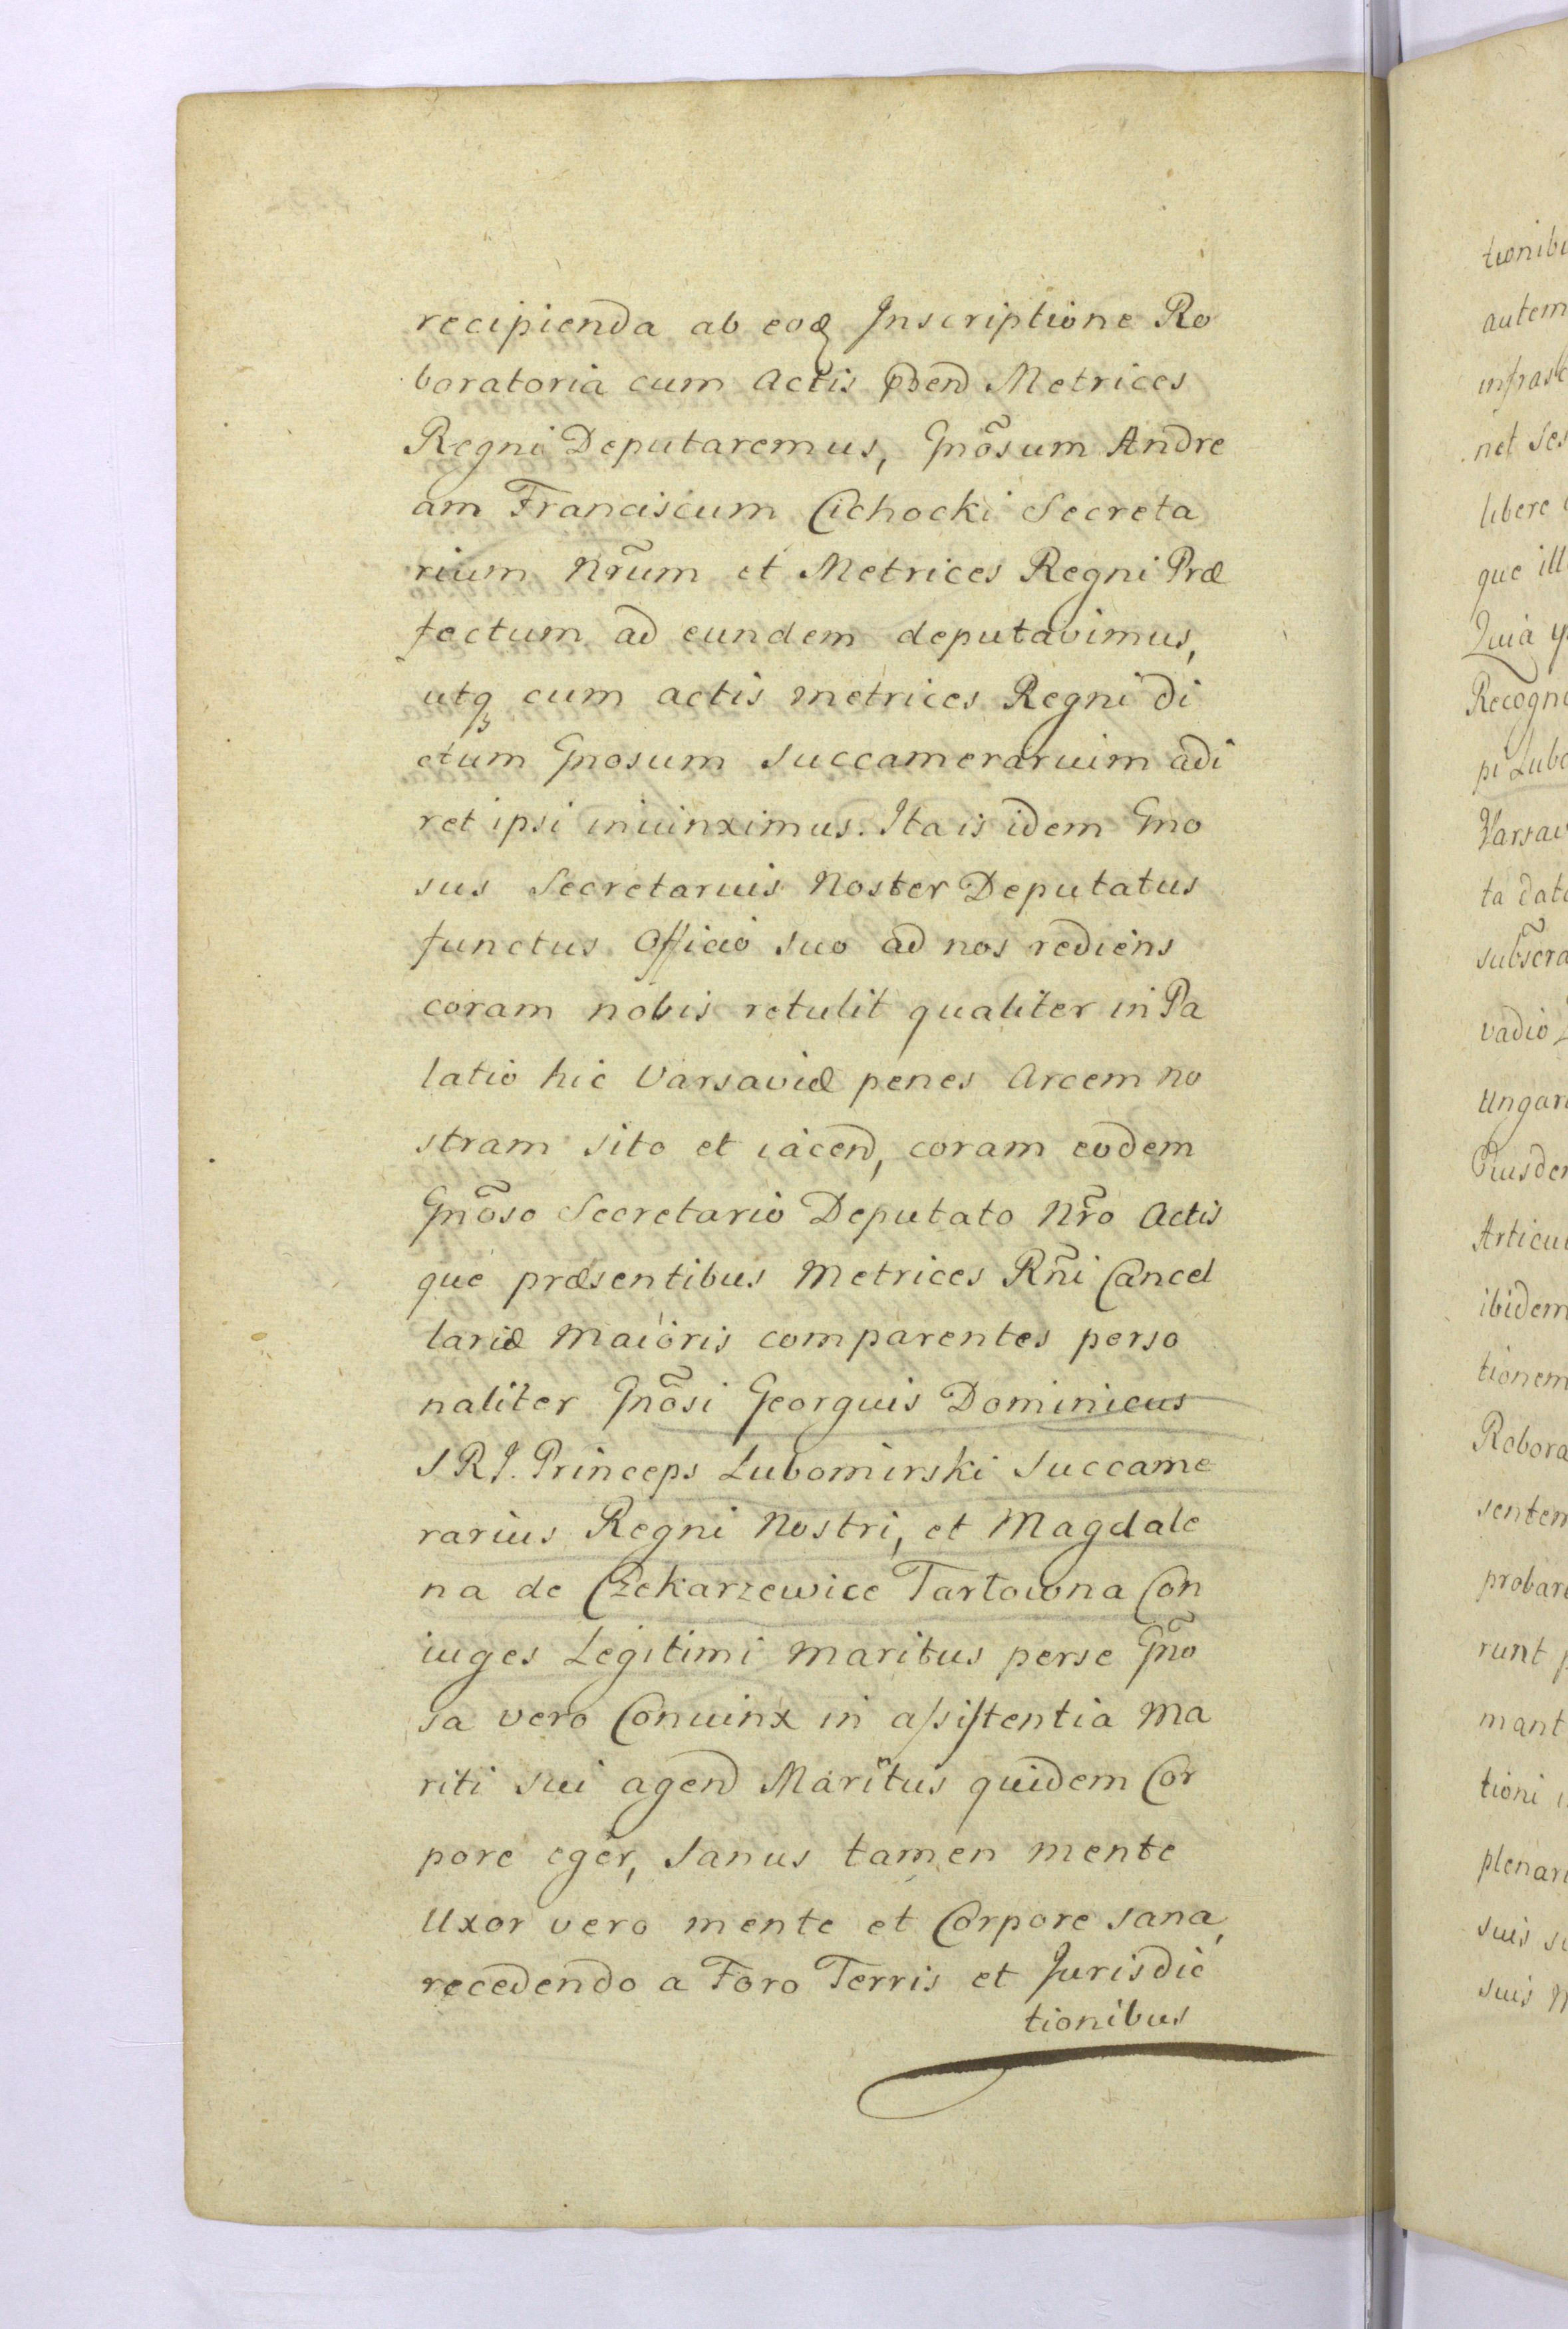 recipienda ab eoq̨ Inscriptione Ro
boratoria cum Actis Metrices
Regni Deputaremus, Gnõsum Andre
am Franciscum Cichocki Secreta
rium Nr̃um et Metrices Regni Præ
fectum ad eundem deputavimus,
utqꝫ cum actis metrices Regni di
ctum Gnosum Succamerarium adi
ret ipsi iniunximus. Ita is idem Gno
sus Secretarius Noster Deputatus
functus Officio suo ad nos rediens
coram nobis retulit qualiter in Pa
latio hic Varsaviæ penes Arcem no
stram sito et iacend, coram eodem
Gnõso Secretario Deputato Nr̃o Actis
que præsentibus Metrices Rñi Cancel
lariæ Maioris comparentes perso
naliter Gnõsi Georgius Dominicus
S R I. Princeps Lubomirski Succame
rarius Regni Nostri, et Magdale
na de Czekarzewice Tartowna Con
iuges Legitimi Maritus perse Gño
sa vero Coniunx in aſsiſtentia Ma
riti sui agend Maritus quidem Cor
pore eger, Sanus tamen mente
Uxor vero mente et Corpore sana,
recedendo a Foro Terris et Jurisdic
tionibus
autem
libere
que ill
Quia
Recogn
pi Lubo
Varsav
ta dat
vadio
Ungar
Articu
ibidem
tionem
Robora
sentem
probar
runt
mant
tioni
plenar
suis
suis